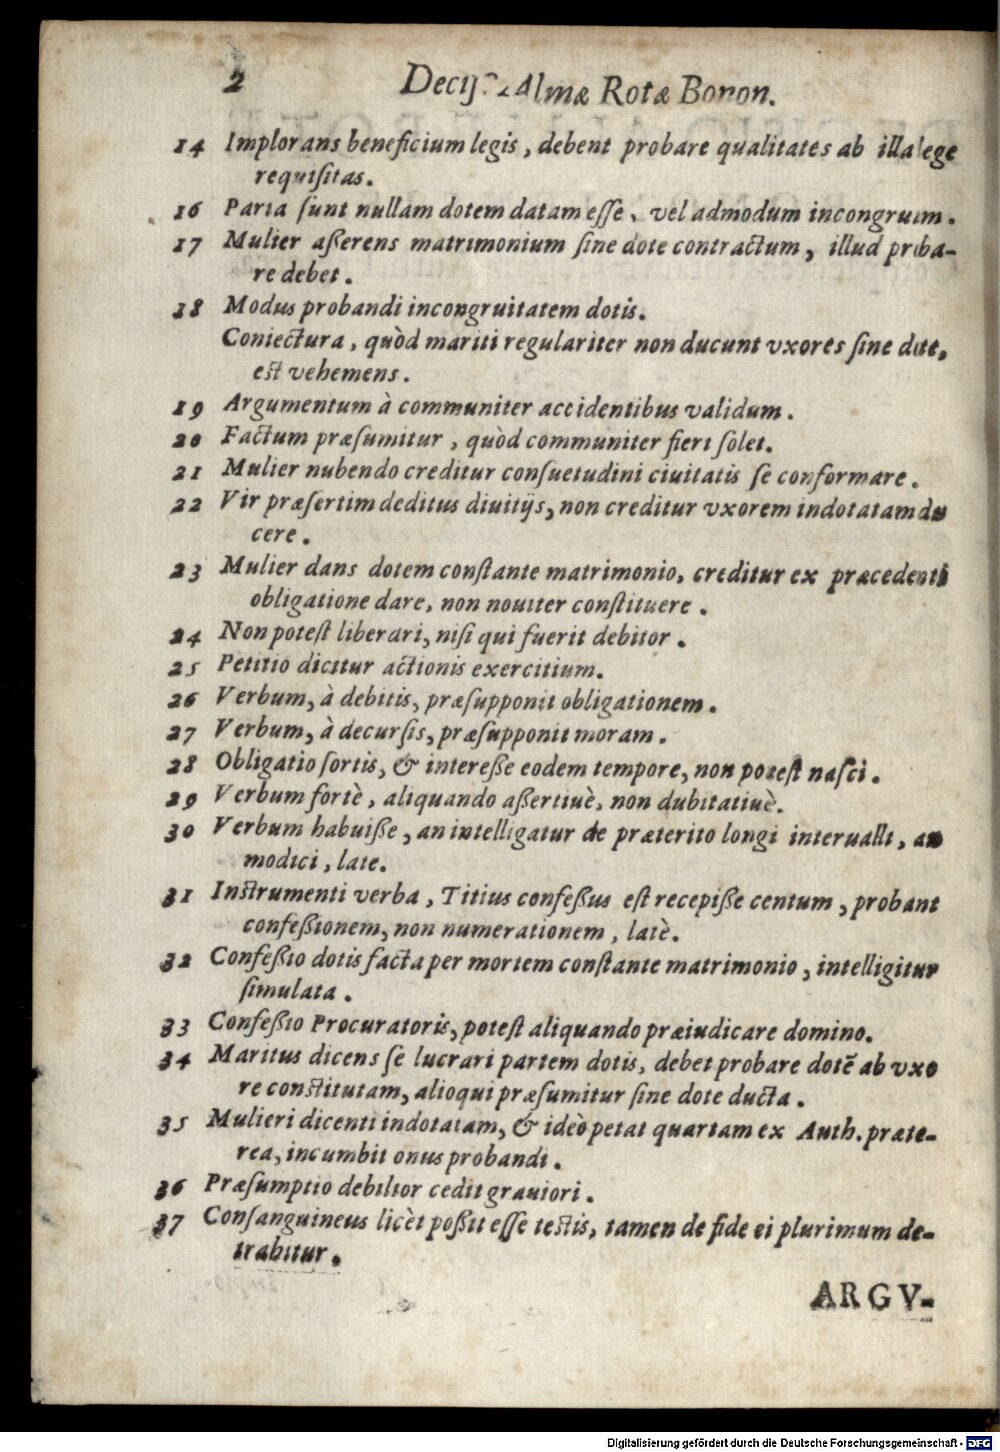 2 Decis. Almæ Rotæ Bonon.
14 Implorans beneficium legis, debent probare qualitates ab illa lege
requiſitas.
16 Paria ſunt nullam dotem datam eſſe, vel admodum incongruam.
17 Mulier aßerens matrimonium ſine dote contractum, illud proba-
re debet.
18 Modus probandi incongruitatem dotis.
Coniectura, quòd mariti regulariter non ducunt vxores ſine dote,
est vehemens.
19 Argumentum à communiter accidentibus validum.
20 Factum præſumitur, quòd communiter fieri ſolet.
21 Mulier nubendo creditur conſuetudini ciuitatis ſe conformare.
22 Vir præſertim deditus diuitijs, non creditur vxorem indotatam du
cere.
23 Mulier dans dotem conſtante matrimonio, creditur ex præcedenti
obligatione dare, non nouiter conſtituere.
24 Non poteſt liberari, niſi qui fuerit debitor.
25 Petitio dicitur actionis exercitium.
26 Verbum, à debitis, præſupponit obligationem.
27 Verbum, à decurſis, præſupponit moram.
28 Obligatio ſortis, & intereße eodem tempore, non poteſt naſci.
29 Verbum fortè, aliquando aßertiuè, non dubitatiuè.
30 Verbum habuiße, an intelligatur de præterito longi interualli, an
modici, late.
31 Instrumenti verba, Titius confeßus est recepiße centum, probant
confeßionem, non numerationem, latè.
32 Confeßio dotis facta per mortem conſtante matrimonio, intelligitur
ſimulata.
33 Confeßio Procuratoris, poteſt aliquando præiudicare domino.
34 Maritus dicens ſe lucrari partem dotis, debet probare dotē ab vxo
re constitutam, alioqui præſumitur ſine dote ducta.
35 Mulieri dicenti indotatam, & ideò petat quartam ex Auth. præte-
rea, incumbit onus probandi.
36 Præſumptio debilior cedit grauiori.
37 Conſanguineus licèt poßit eſſe testis, tamen de fide ei plurimum de-
trahitur.
ARGV-
Digitalisierung gefördert durch die Deutsche Forschungsgemeinschaft - DFG